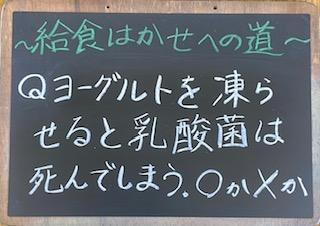 ~給食はかせへの道~
Qヨーグルトを凍ら
せると乳酸菌は
死んでしまう.○か×か